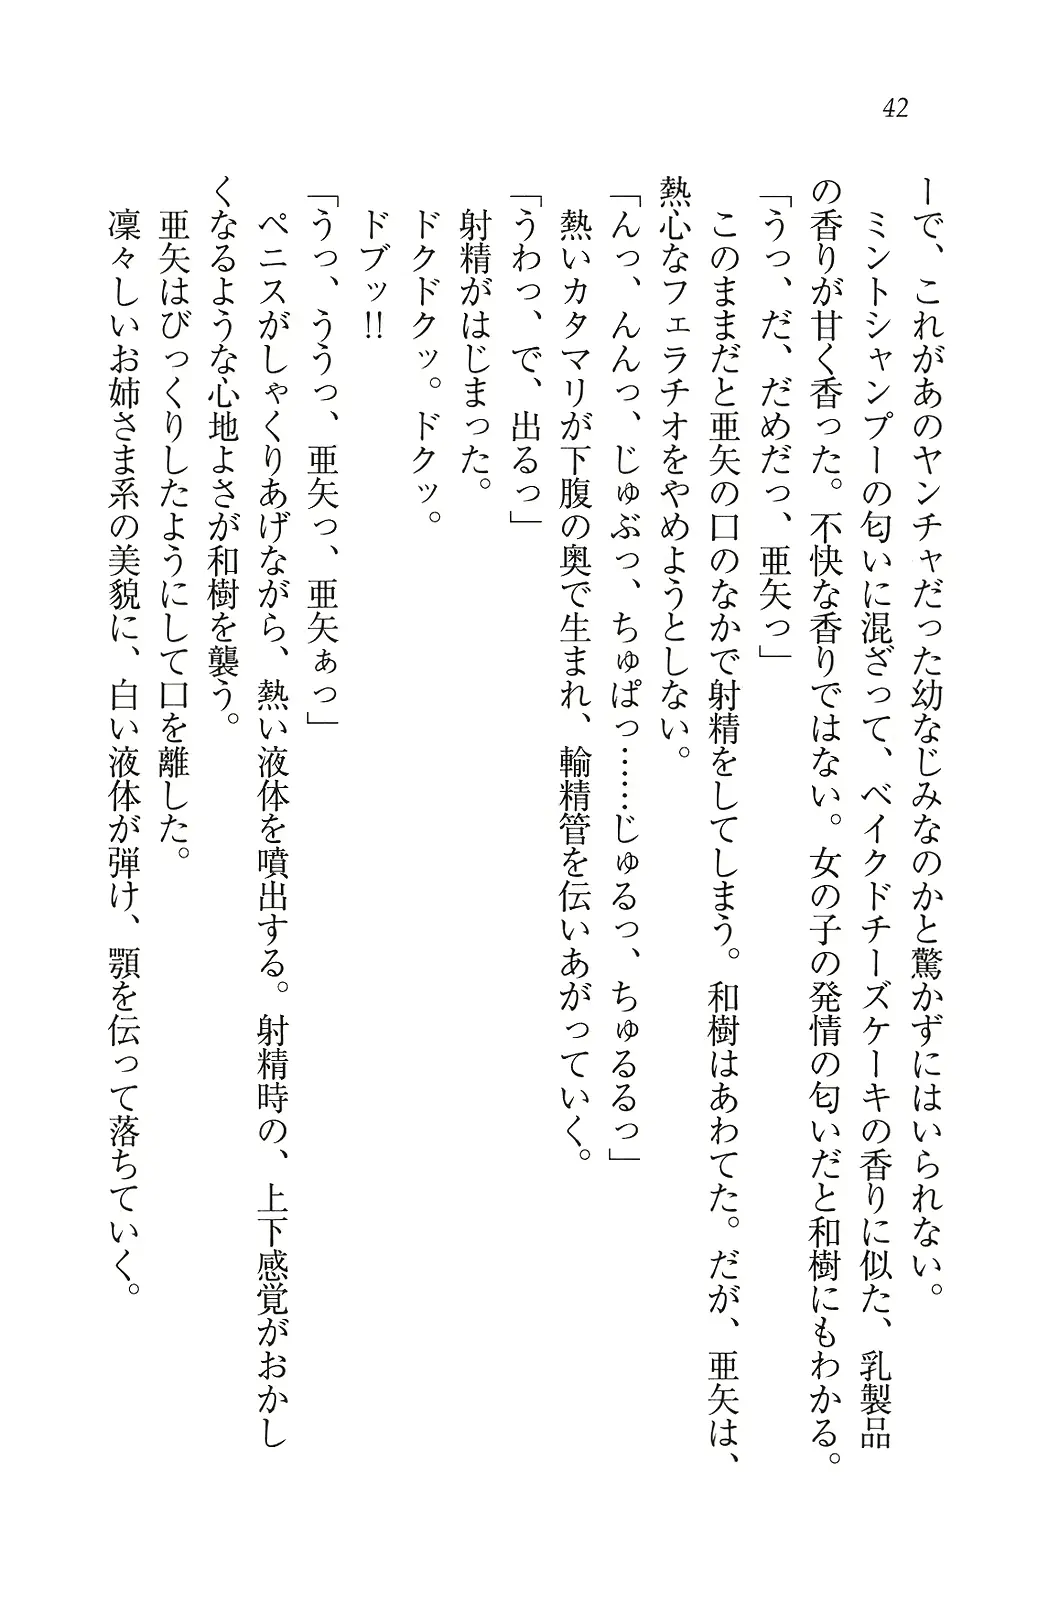 42
ーで、これがあのヤンチャだった幼なじみなのかと驚かずにはいられない。
ミントシャンプーの匂いに混ざって、ベイクドチーズケーキの香りに似た、乳製品
の香りが甘く香った。不快な香りではない。女の子の発情の匂いだと和樹にもわかる。
「うっ、だ、だめだっ、亜矢っ」
このままだと亜矢の口のなかで射精をしてしまう。和樹はあわてた。だが、亜矢は、
熱心なフェラチオをやめようとしない。
「んっ、んんっ、じゅぶっ、ちゅぱっ……じゅるっ、ちゅるるっ」
熱いカタマリが下腹の奥で生まれ、輸精管を伝いあがっていく。
「うわっ、で、出るっ」
射精がはじまった。
ドクドクッ。ドクッ。
ドブッ!!
「うっ、ううっ、亜矢っ、亜矢ぁっ」
ペニスがしゃくりあげながら、熱い液体を噴出する。射精時の、上下感覚がおかし
くなるような心地よさが和樹を襲う。
亜矢はびっくりしたようにして口を離した。
凛々しいお姉さま系の美貌に、白い液体が弾け、顎を伝って落ちていく。